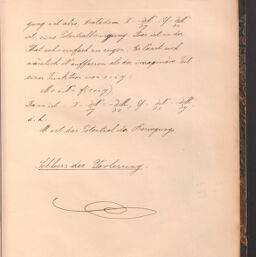 gung ist also, trotzdem X = ∂M/∂y, Y = ∂M/∂x
ist, eine Potentialbewegung. Das ist in der
That sehr einfach zu zeigen. Es lässt sich
nämlich M auffassen als der imaginäre Teil
einer Funktion von x+iy:
M+iN = f(x+iy)
Dann ist: X = ∂M/∂y = -∂N/∂x, Y =
d. h.
N ist das Potential der Bewegung.
Schluss der Vorlesung.